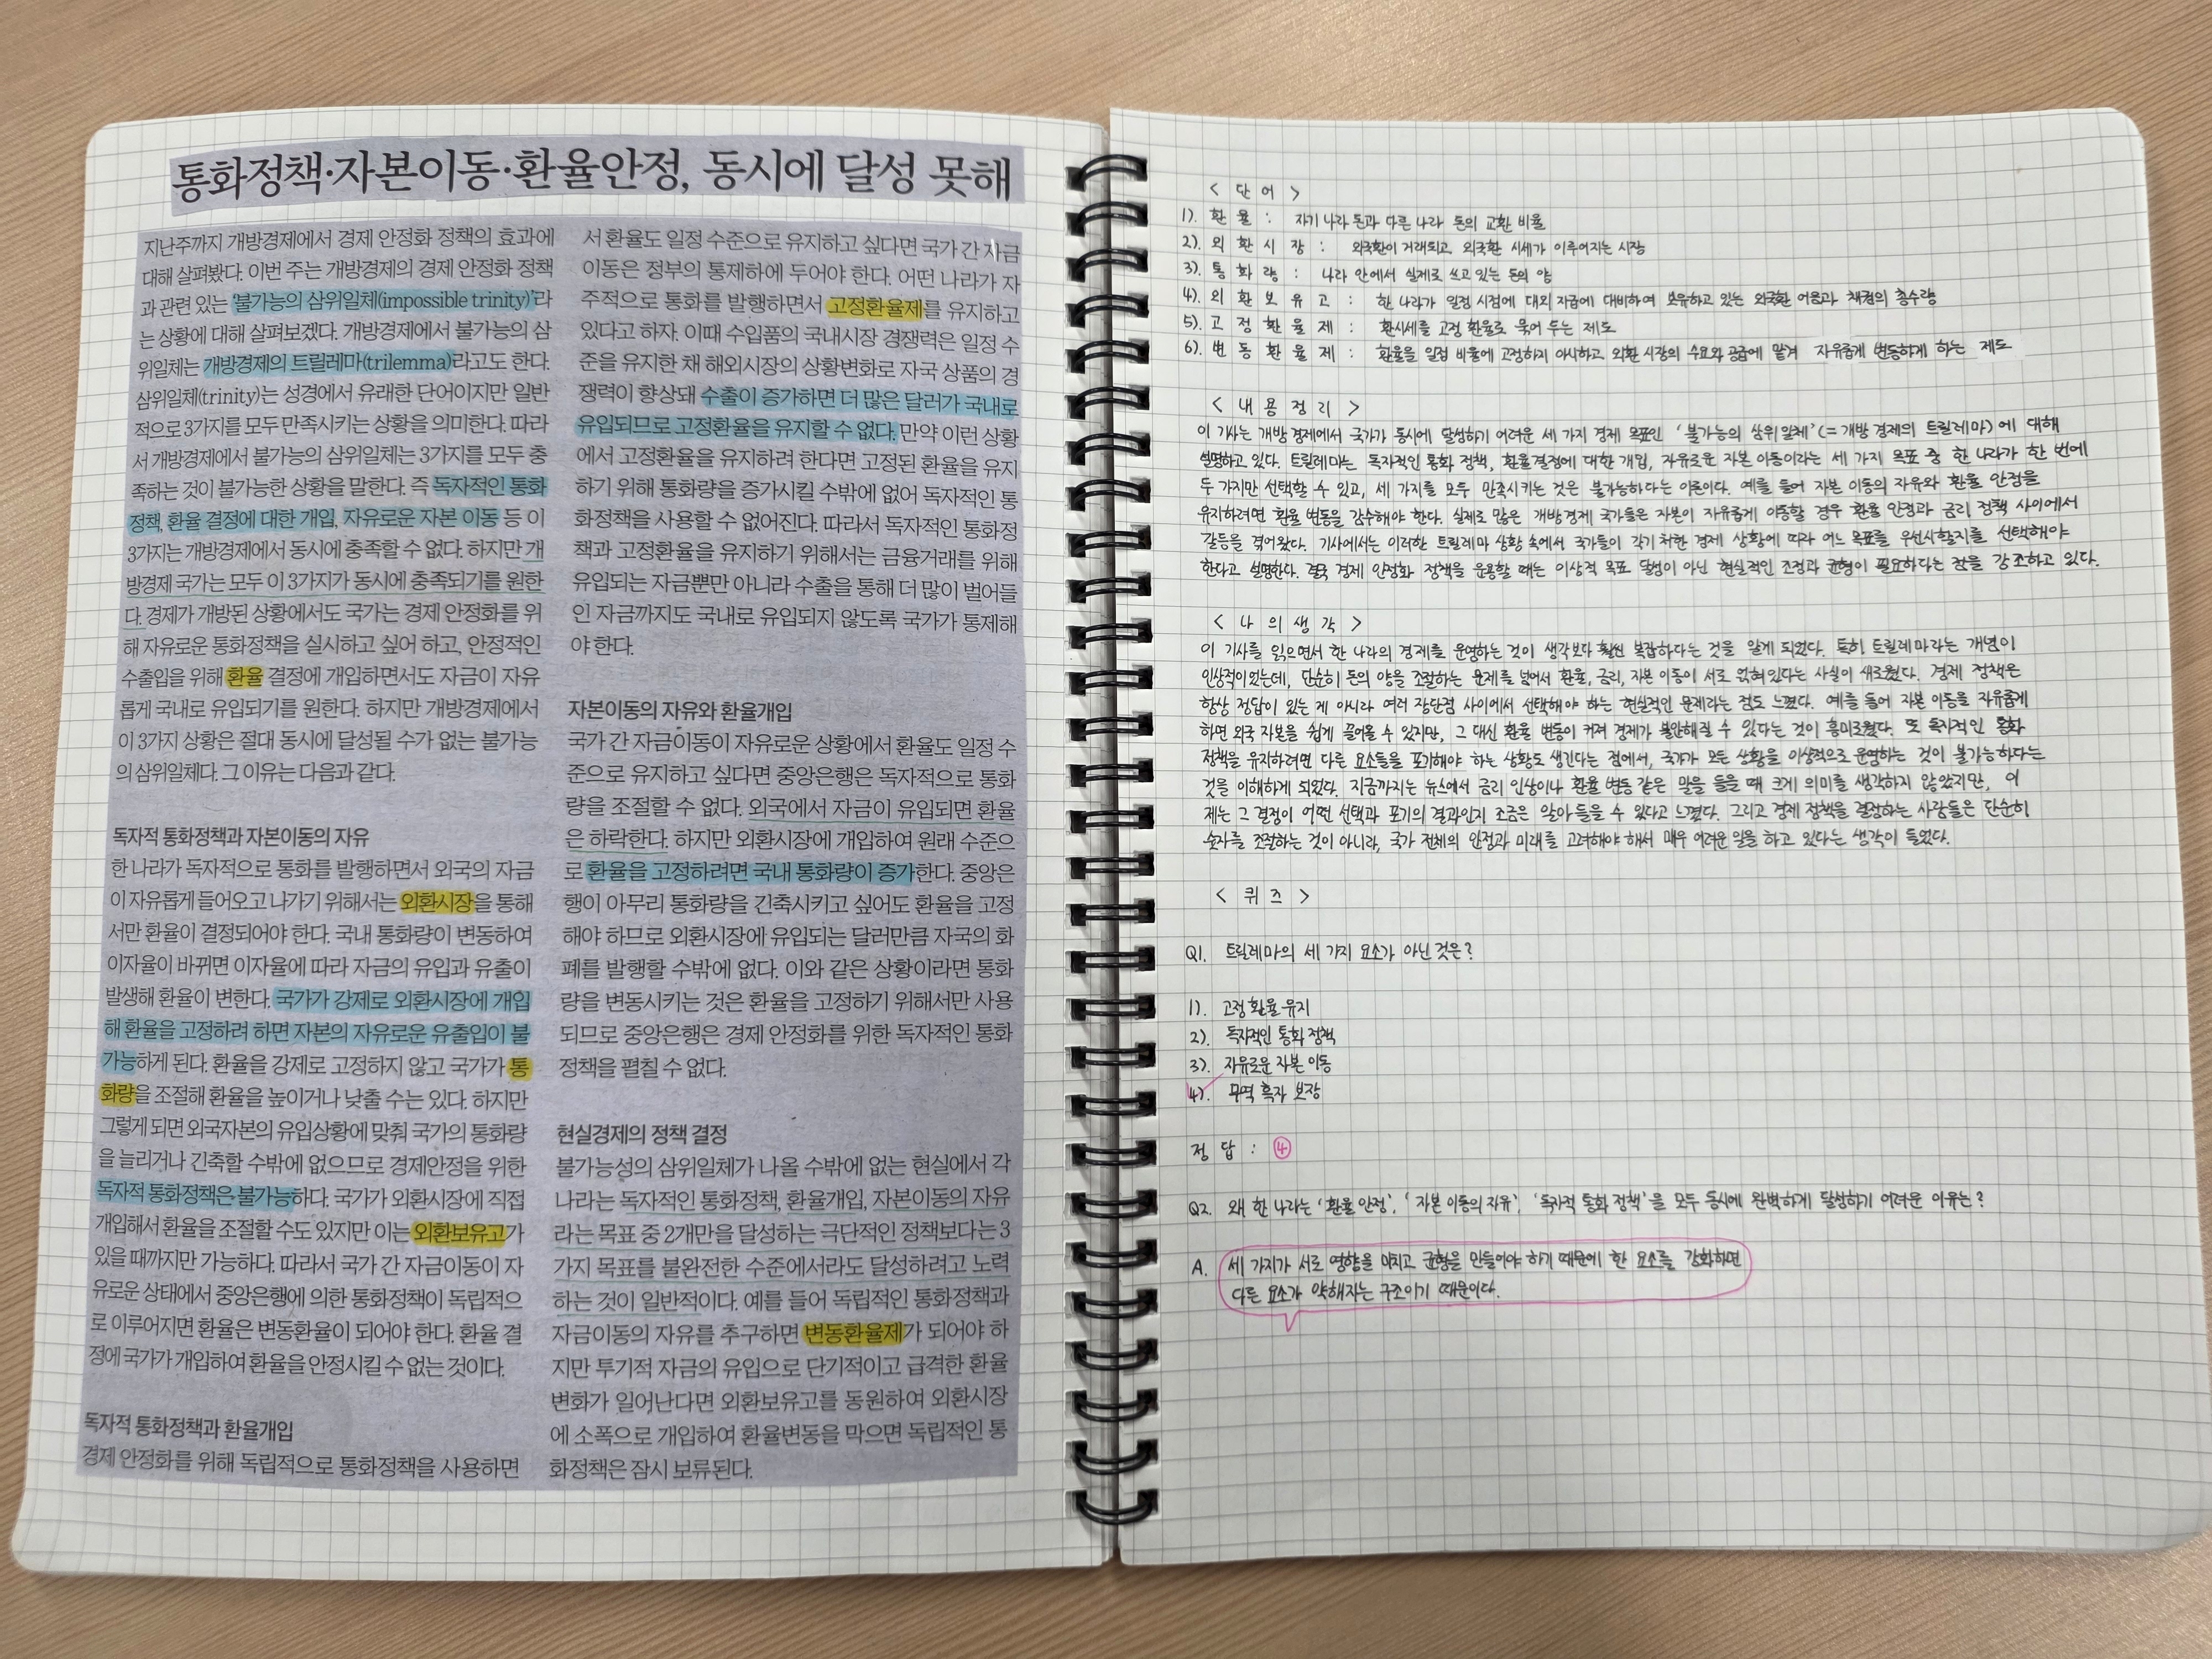 통화정책·자본이동·환율안정, 동시에 달성 못해
지난주까지 개방경제에서 경제 안정화 정책의 효과에
대해 살펴봤다. 이번 주는 개방경제의 경제 안정화 정책
과 관련 있는 ‘불가능의 삼위일체(impossible trinity)’라
는 상황에 대해 살펴보겠다. 개방경제에서 불가능의 삼
위일체는 개방경제의 트릴레마(trilemma)라고도 한다.
삼위일체(trinity)는 성경에서 유래한 단어이지만 일반
적으로 3가지를 모두 만족시키는 상황을 의미한다. 따라
서 개방경제에서 불가능의 삼위일체는 3가지를 모두 충
족하는 것이 불가능한 상황을 말한다. 즉 독자적인 통화
정책, 환율 결정에 대한 개입, 자유로운 자본 이동 등 이
3가지는 개방경제에서 동시에 충족할 수 없다. 하지만 개
방경제 국가는 모두 이 3가지가 동시에 충족되기를 원한
다. 경제가 개방된 상황에서도 국가는 경제 안정화를 위
해 자유로운 통화정책을 실시하고 싶어 하고, 안정적인
수출입을 위해 환율 결정에 개입하면서도 자금이 자유
롭게 국내로 유입되기를 원한다. 하지만 개방경제에서
이 3가지 상황은 절대 동시에 달성될 수가 없는 불가능
의 삼위일체다. 그 이유는 다음과 같다.
독자적 통화정책과 자본이동의 자유
한 나라가 독자적으로 통화를 발행하면서 외국의 자금
이 자유롭게 들어오고 나가기 위해서는 외환시장을 통해
서만 환율이 결정되어야 한다. 국내 통화량이 변동하여
이자율이 바뀌면 이자율에 따라 자금의 유입과 유출이
발생해 환율이 변한다. 국가가 강제로 외환시장에 개입
해 환율을 고정하려 하면 자본의 자유로운 유출입이 불
가능하게 된다. 환율을 강제로 고정하지 않고 국가가 통
화량을 조절해 환율을 높이거나 낮출 수는 있다. 하지만
그렇게 되면 외국자본의 유입상황에 맞춰 국가의 통화량
을 늘리거나 긴축할 수밖에 없으므로 경제안정을 위한
독자적 통화정책은 불가능하다. 국가가 외환시장에 직접
개입해서 환율을 조절할 수도 있지만 이는 외환보유고가
있을 때까지만 가능하다. 따라서 국가 간 자금이동이 자
유로운 상태에서 중앙은행에 의한 통화정책이 독립적으
로 이루어지면 환율은 변동환율이 되어야 한다. 환율 결
정에 국가가 개입하여 환율을 안정시킬 수 없는 것이다.
독자적 통화정책과 환율개입
경제 안정화를 위해 독립적으로 통화정책을 사용하면
서 환율도 일정 수준으로 유지하고 싶다면 국가 간 자금
이동은 정부의 통제하에 두어야 한다. 어떤 나라가 자
주적으로 통화를 발행하면서 고정환율제를 유지하고
있다고 하자. 이때 수입품의 국내시장 경쟁력은 일정 수
준을 유지한 채 해외시장의 상황변화로 자국 상품의 경
쟁력이 향상돼 수출이 증가하면 더 많은 달러가 국내로
유입되므로 고정환율을 유지할 수 없다. 만약 이런 상황
에서 고정환율을 유지하려 한다면 고정된 환율을 유지
하기 위해 통화량을 증가시킬 수밖에 없어 독자적인 통
화정책을 사용할 수 없어진다. 따라서 독자적인 통화정
책과 고정환율을 유지하기 위해서는 금융거래를 위해
유입되는 자금뿐만 아니라 수출을 통해 더 많이 벌어들
인 자금까지도 국내로 유입되지 않도록 국가가 통제해
야 한다.
자본이동의 자유와 환율개입
국가 간 자금이동이 자유로운 상황에서 환율도 일정 수
준으로 유지하고 싶다면 중앙은행은 독자적으로 통화
량을 조절할 수 없다. 외국에서 자금이 유입되면 환율
은 하락한다. 하지만 외환시장에 개입하여 원래 수준으
로 환율을 고정하려면 국내 통화량이 증가한다. 중앙은
행이 아무리 통화량을 긴축시키고 싶어도 환율을 고정
해야 하므로 외환시장에 유입되는 달러만큼 자국의 화
폐를 발행할 수밖에 없다. 이와 같은 상황이라면 통화
량을 변동시키는 것은 환율을 고정하기 위해서만 사용
되므로 중앙은행은 경제 안정화를 위한 독자적인 통화
정책을 펼칠 수 없다.
현실경제의 정책 결정
불가능성의 삼위일체가 나올 수밖에 없는 현실에서 각
나라는 독자적인 통화정책, 환율개입, 자본이동의 자유
라는 목표 중 2개만을 달성하는 극단적인 정책보다는 3
가지 목표를 불완전한 수준에서라도 달성하려고 노력
하는 것이 일반적이다. 예를 들어 독립적인 통화정책과
자금이동의 자유를 추구하면 변동환율제가 되어야 하
지만 투기적 자금의 유입으로 단기적이고 급격한 환율
변화가 일어난다면 외환보유고를 동원하여 외환시장
에 소폭으로 개입하여 환율변동을 막으면 독립적인 통
화정책은 잠시 보류된다.
< 단어 >
1). 환율 : 자기 나라 돈과 다른 나라 돈의 교환 비율
2). 외환시장 : 외국환이 거래되고 외국환 시세가 이루어지는 시장
3). 통화량 : 나라 안에서 실제로 쓰고 있는 돈의 양
4). 외환보유고 : 한 나라가 일정 시점에 대외 지급에 대비하여 보유하고 있는 외국환 어음과 채권의 총수량
5). 고정환율제 : 환시세를 고정 환율로 묶어 두는 제도
6). 변동환율제 : 환율을 일정 비율에 고정하지 아니하고 외환 시장의 수요와 공급에 맡겨 자유롭게 변동하게 하는 제도
< 내용정리 >
이 기사는 개방 경제에서 국가가 동시에 달성하기 어려운 세 가지 경제 목표인 ‘불가능의 삼위일체’(= 개방 경제의 트릴레마)에 대해
설명하고 있다. 트릴레마는 독자적인 통화 정책, 환율결정에 대한 개입, 자유로운 자본 이동이라는 세 가지 목표 중 한 나라가 한 번에
두 가지만 선택할 수 있고, 세 가지를 모두 만족시키는 것은 불가능하다는 이론이다. 예를 들어 자본 이동의 자유와 환율 안정을
유지하려면 환율 변동을 감수해야 한다. 실제로 많은 개방경제 국가들은 자본이 자유롭게 이동할 경우 환율 안정과 금리 정책 사이에서
갈등을 겪어왔다. 기사에서는 이러한 트릴레마 상황 속에서 국가들이 각기 처한 경제 상황에 따라 어느 목표를 우선시할지를 선택해야
한다고 설명한다. 결국 경제 안정화 정책을 운용할 때는 이상적 목표 달성이 아닌 현실적인 조정과 균형이 필요하다는 점을 강조하고 있다.
< 나의생각 >
이 기사를 읽으면서 한 나라의 경제를 운영하는 것이 생각보다 훨씬 복잡하다는 것을 알게 되었다. 특히 트릴레마라는 개념이
인상적이었는데, 단순히 돈의 양을 조절하는 문제를 넘어서 환율, 금리, 자본 이동이 서로 얽혀있다는 사실이 새로웠다. 경제 정책은
항상 정답이 있는 게 아니라 여러 장단점 사이에서 선택해야 하는 현실적인 문제라는 점도 느꼈다. 예를 들어 자본 이동을 자유롭게
하면 외국 자본을 쉽게 끌어올 수 있지만, 그 대신 환율 변동이 커져 경제가 불안해질 수 있다는 것이 흥미로웠다. 또 독자적인 통화
정책을 유지하려면 다른 요소들을 포기해야 하는 상황도 생긴다는 점에서, 국가가 모든 상황을 이상적으로 운영하는 것이 불가능하다는
것을 이해하게 되었다. 지금까지는 뉴스에서 금리 인상이나 환율 변동 같은 말을 들을 때 크게 의미를 생각하지 않았지만, 이
제는 그 결정이 어떤 선택과 포기의 결과인지 조금은 알아 들을 수 있다고 느꼈다. 그리고 경제 정책을 결정하는 사람들은 단순히
숫자를 조절하는 것이 아니라, 국가 전체의 안정과 미래를 고려해야 해서 매우 어려운 일을 하고 있다는 생각이 들었다.
< 퀴즈 >
Q1. 트릴레마의 세 가지 요소가 아닌 것은?
1). 고정 환율 유지
2). 독자적인 통화 정책
3). 자유로운 자본 이동
4). 무역 흑자 보장
정답 : ④
Q2. 왜 한 나라는 ‘환율 안정’, ‘자본 이동의 자유’, ‘독자적 통화 정책’을 모두 동시에 완벽하게 달성하기 어려운 이유는?
A. 세 가지가 서로 영향을 미치고 균형을 만들어야 하기 때문에 한 요소를 강화하면
다른 요소가 약해지는 구조이기 때문이다.